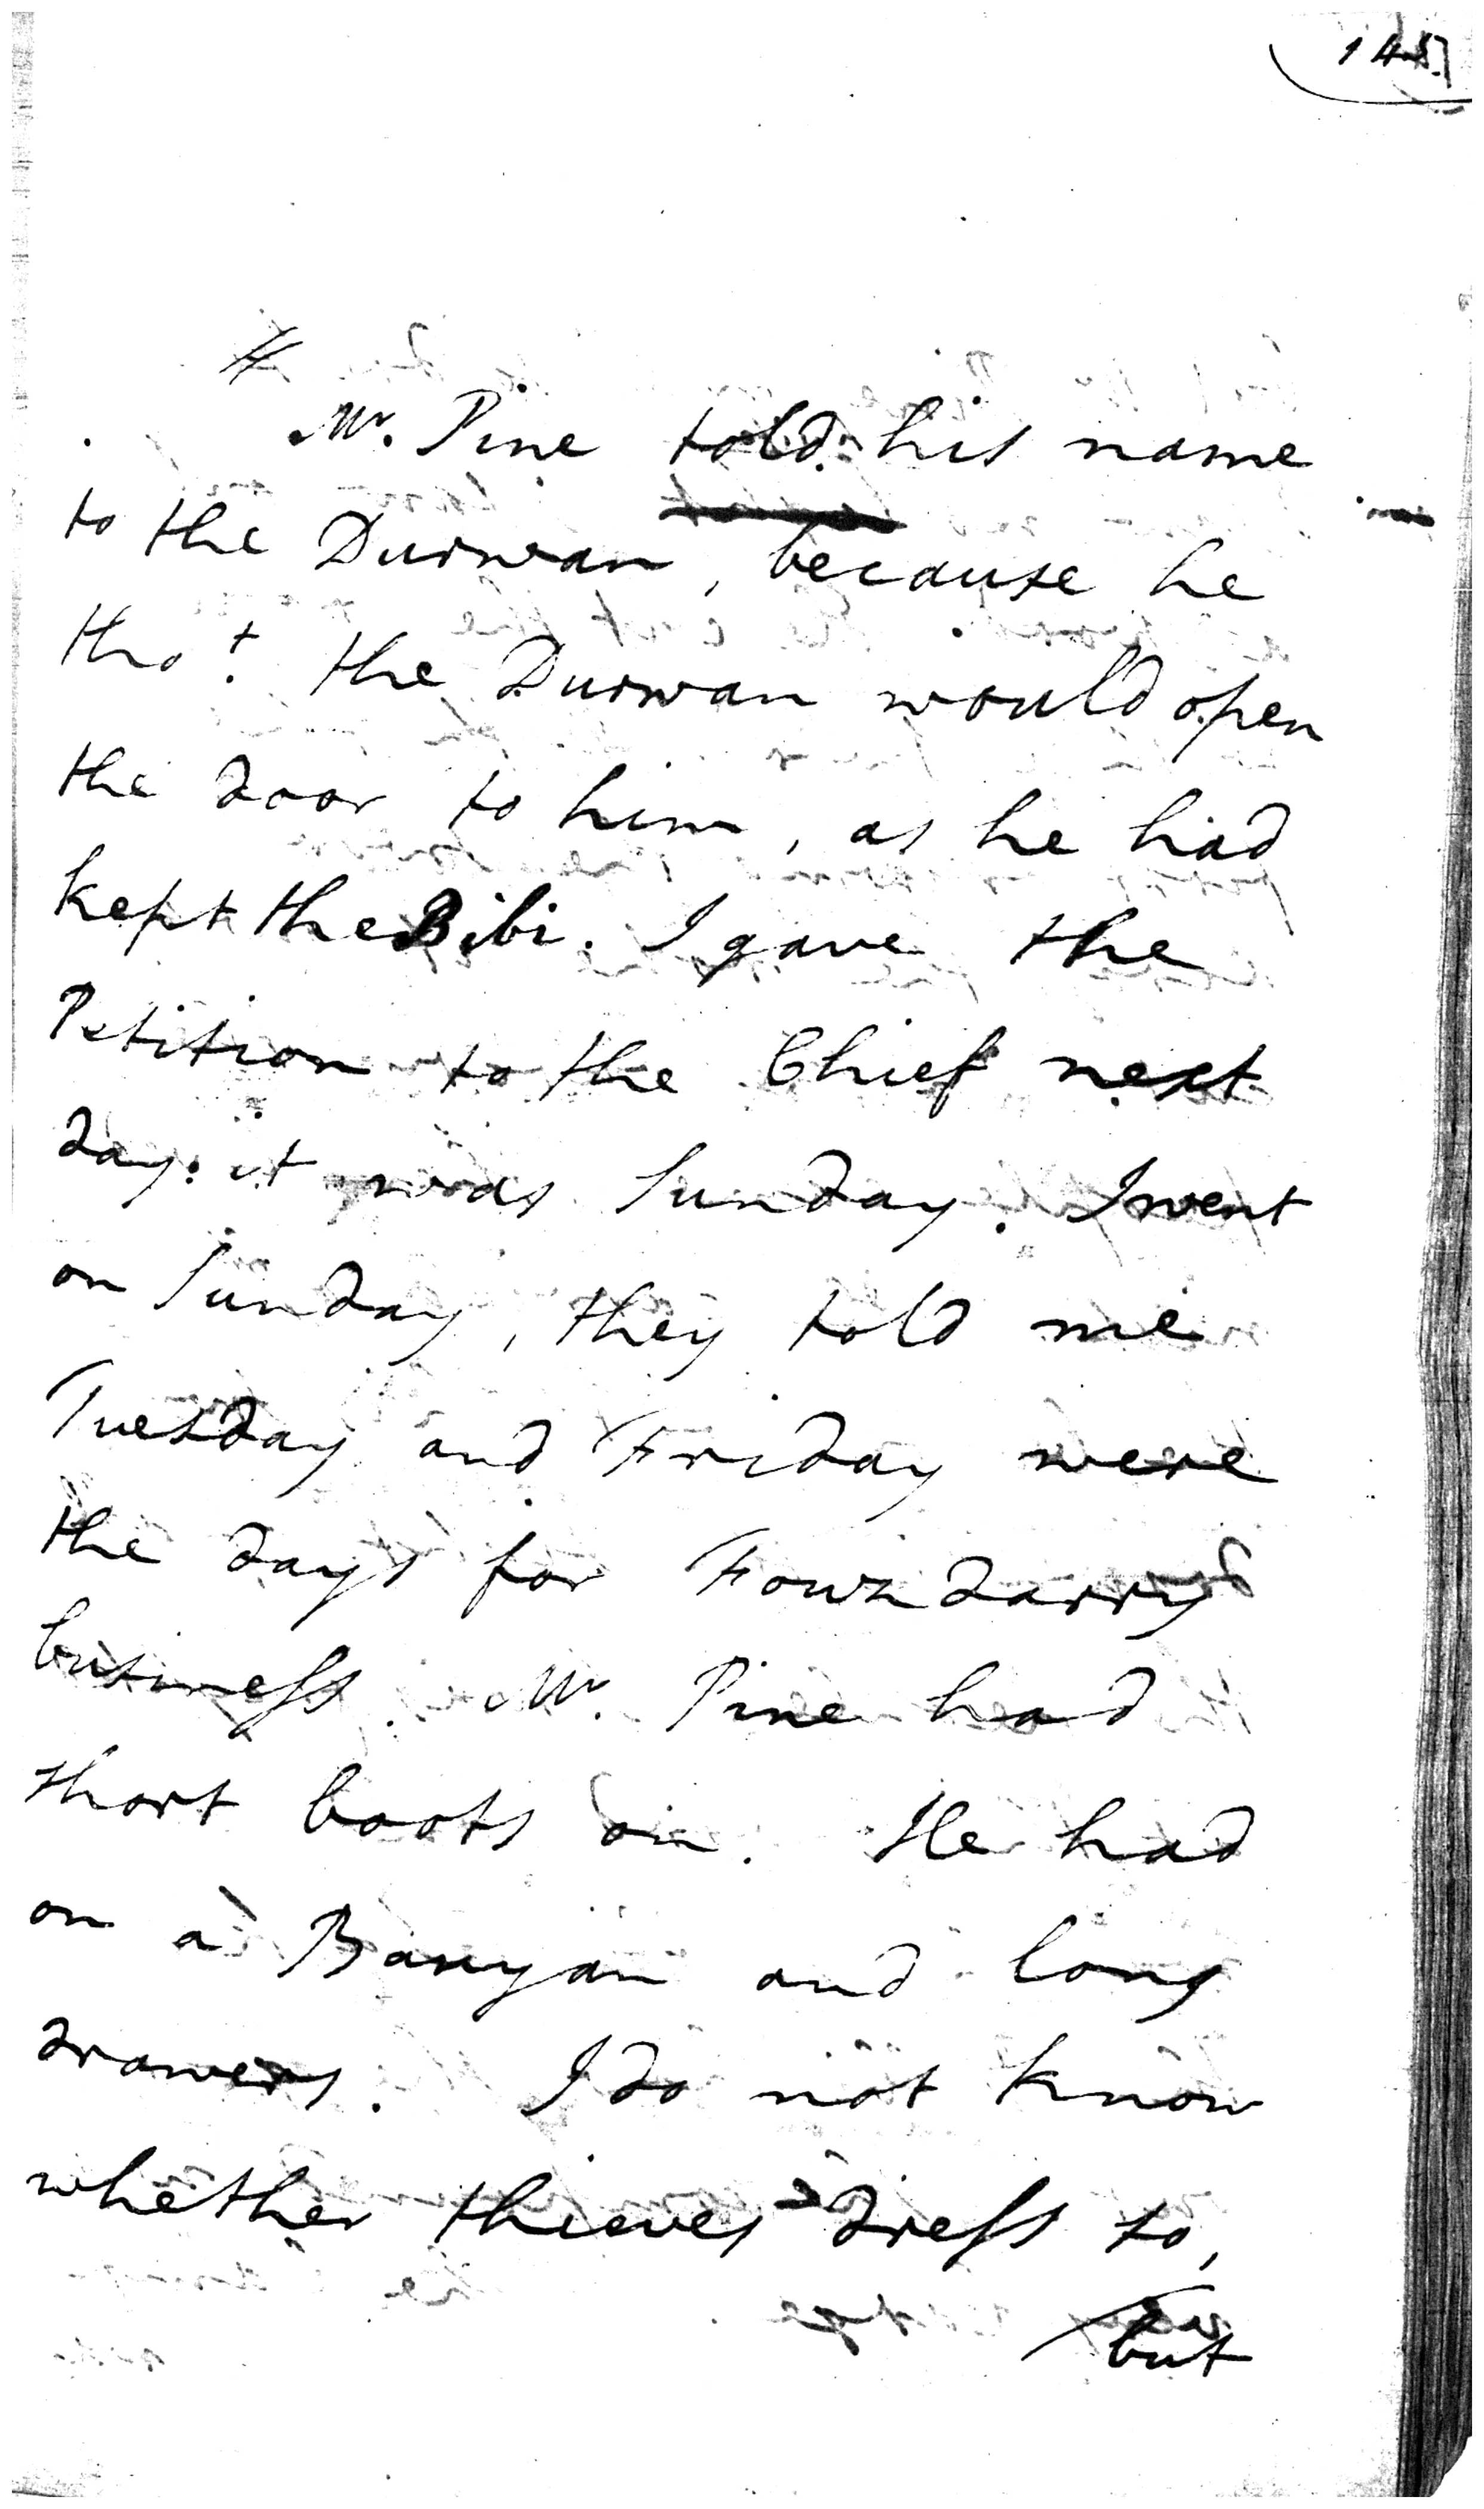 145
Mr. Pine told his name
to the Durwan, because he
tho:t the Durwan would open
the door to him, as he had
kept the Bibi. I gave the
Petition to the Chief next
day: it was Sunday. I went
on Sunday, they told me
Tuesday and Friday were
the days for Fowzdarry
business. Mr. Pine had
short boots on. He had
on a Banyan and long
drawers. I do not know
whether thieves dress so,
but